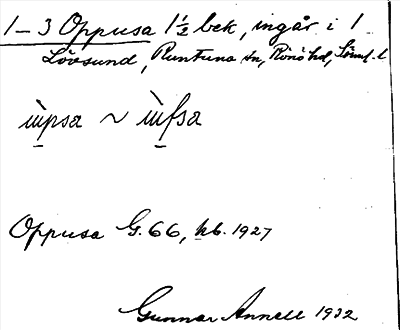 1–3 Oppusa 1½ bek, ingår i 1
Lövsund, Runtuna sn, Rönö hd, Söml. l
ùpsa ~ ùfsa
Oppusa G. 66, hb. 1927
Gunnar Annell 1932